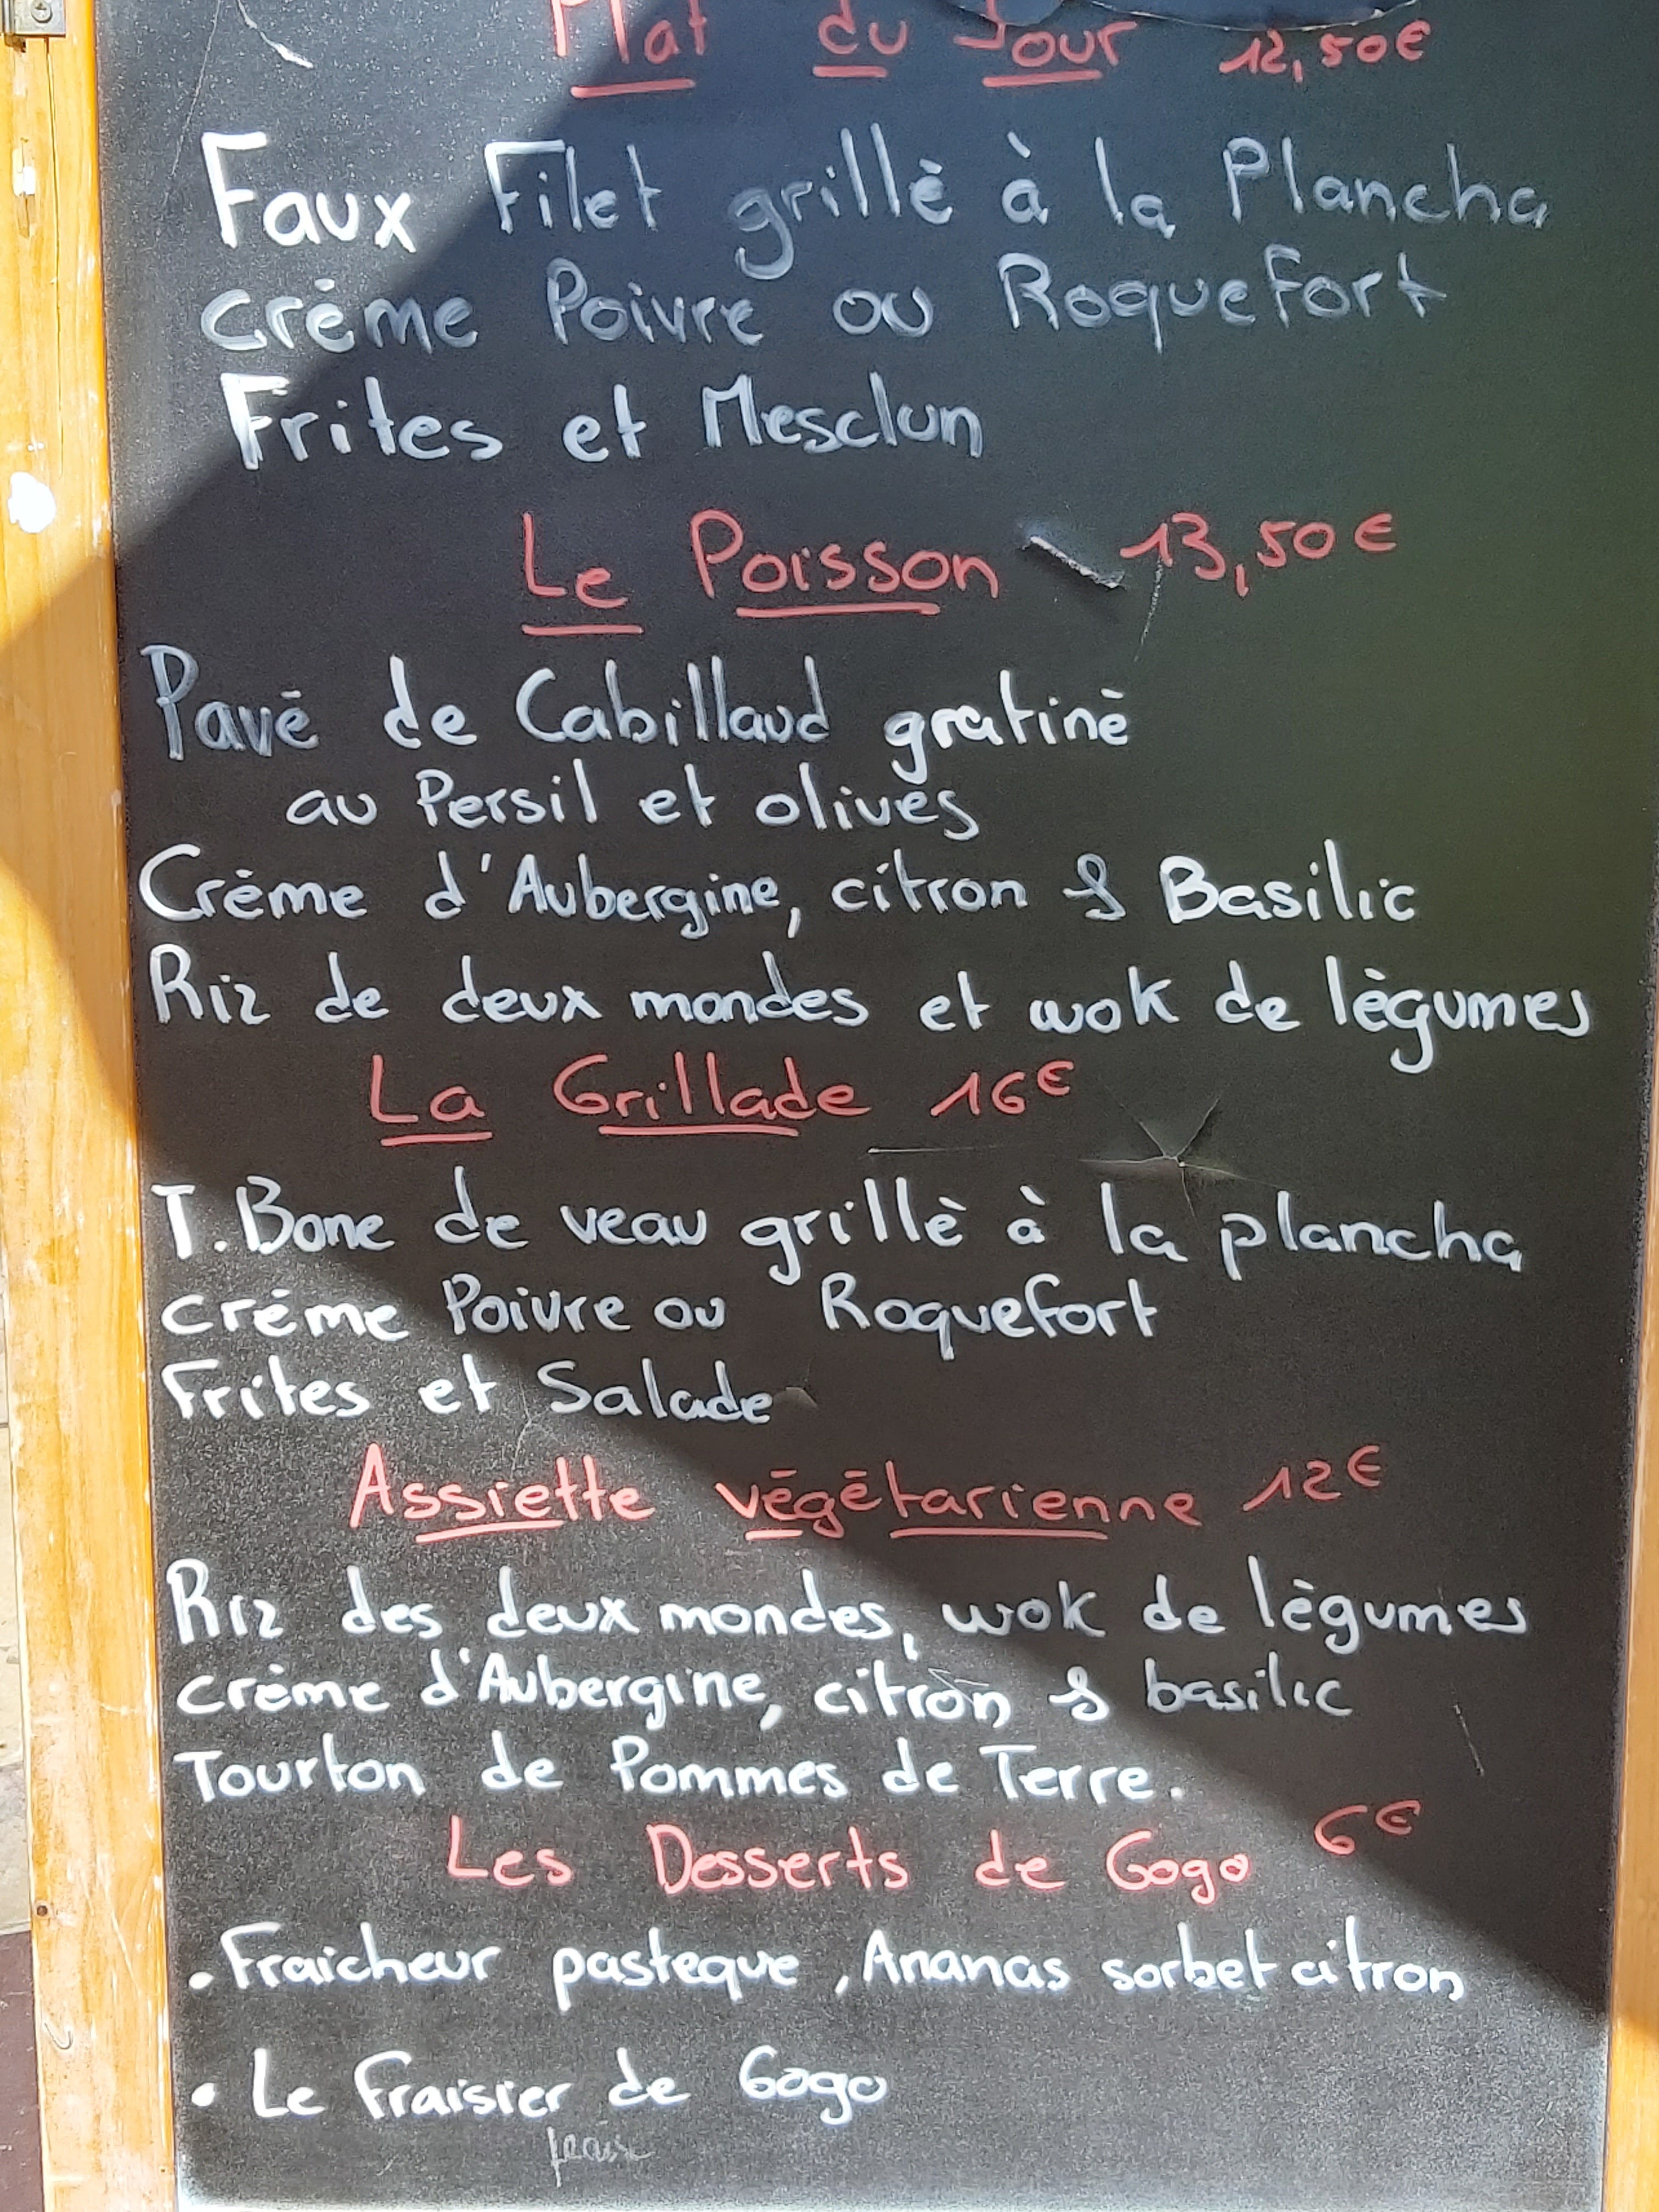 Plat du Jour 12,50€
Faux Filet grillé à la Plancha
crème Poivre ou Roquefort
Frites et Mesclun
Le Poisson 13,50€
Pavé de Cabillaud gratiné
au Persil et olives
Crème d'Aubergine, citron & Basilic
Riz de deux mondes et wok de légumes
La Grillade 16€
T.Bone de veau grillé à la plancha
crème Poivre ou Roquefort
Frites et Salade
Assiette végétarienne 12€
Riz des deux mondes, wok de légumes
crème d'Aubergine, citron & basilic
Tourton de Pommes de Terre.
Les Desserts de Gogo 6€
. Fraicheur pasteque, Ananas sorbet citron
• Le Fraisier de Gogo